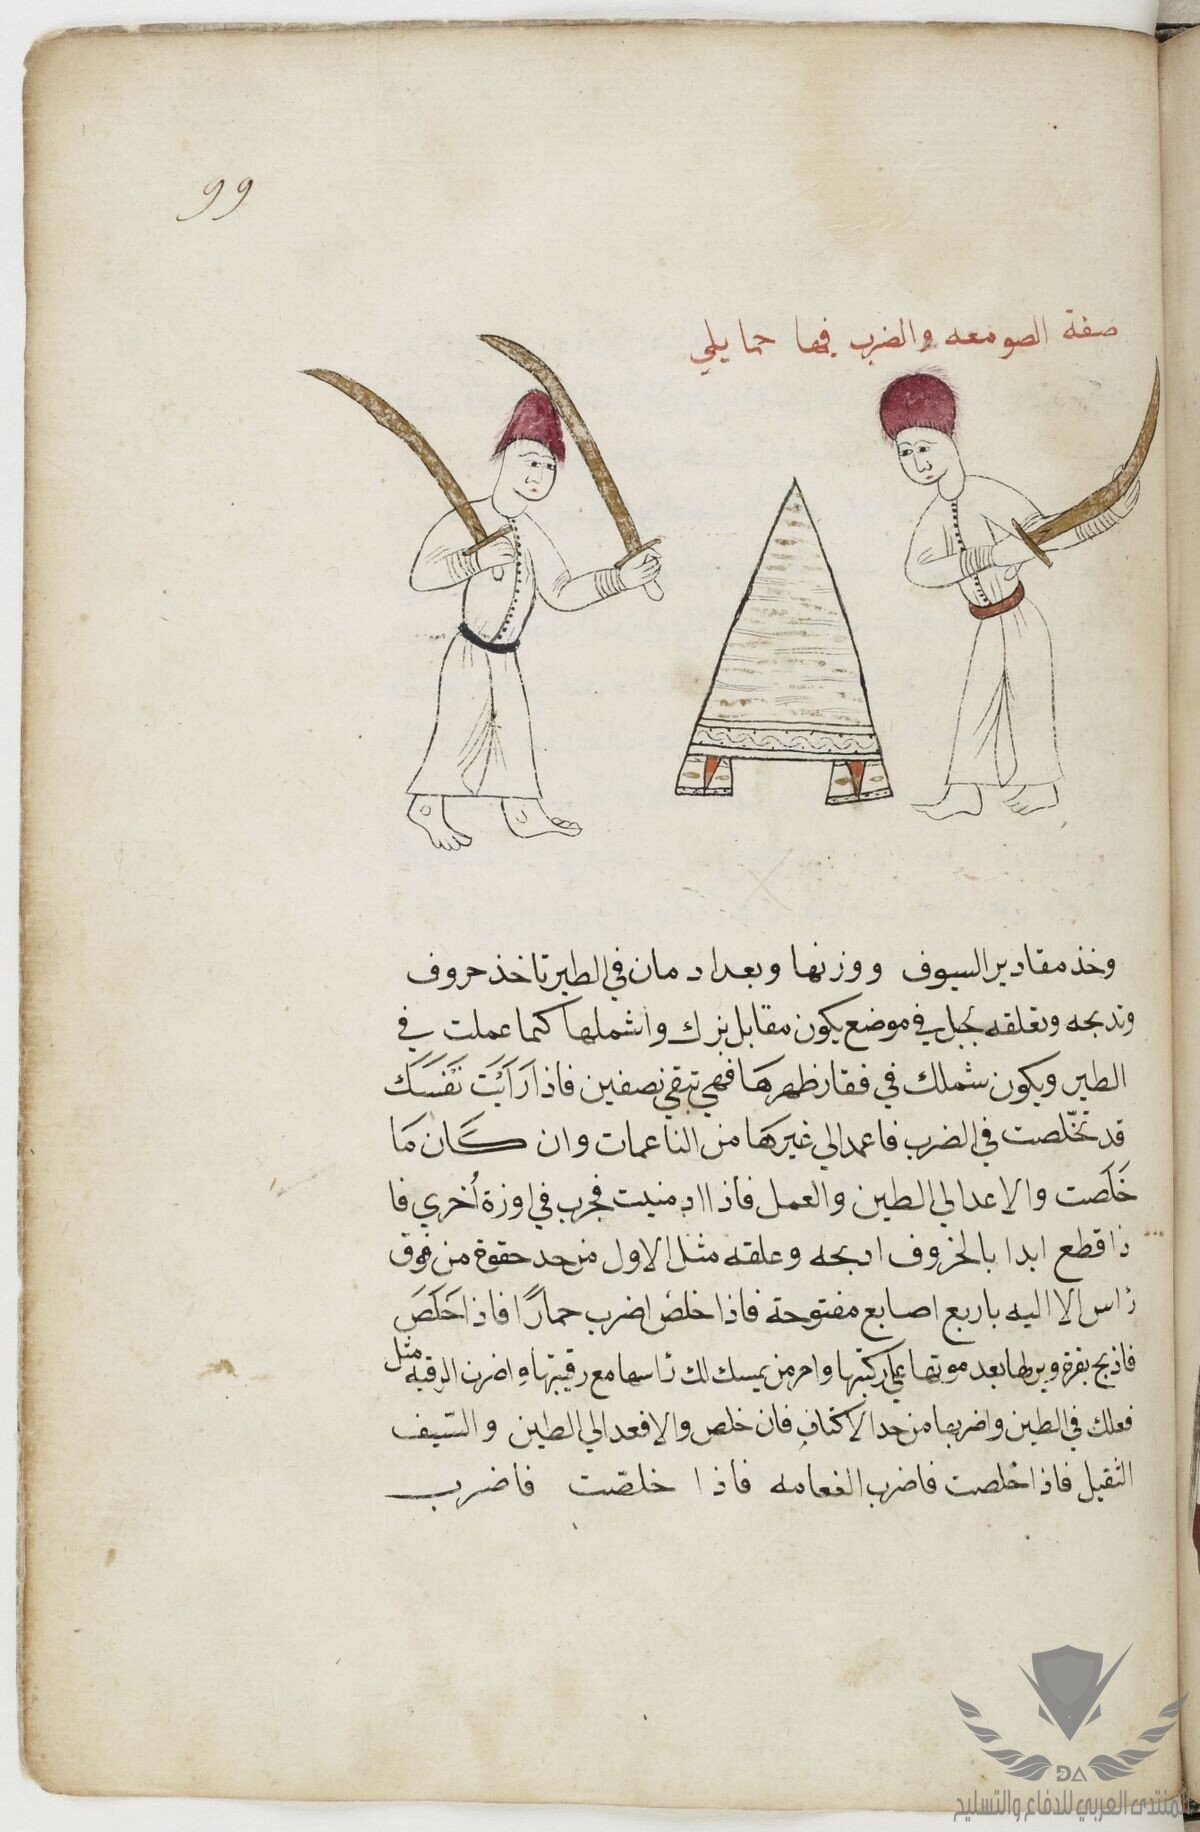 99
صفة الصومعه والضرب فيها حمايلي
وخذ مقادير السيوف ووزنها وبعد ادمان في الطير تاخذ حروف
وتدبحه وتعلقه بحبل في موضع يكون مقابل بزك واشملها كما عملت في
الطير ويكون شملك في فقار ظهرها فهي تبقي نصفين فاذا رَاَيْتَ نَفْسَكَ
قد تخّلصت في الضرب فاعمد الي غيرها من الناعمات وان كَان مَا
خَلَصت والا عد الي الطين والعمل فاذا ادمنيت فجرب في اوزة أخري فا
ذا قطع ابدا بالخروف ادبحه وعلقه مثل الاول من حد حقوة من فوق
راس الا اليه باربع اصابع مفتوحة فاذا خلص اضرب حمارًا فاذا خَلَصَ
فاذبح بقرة وبربطها بعد موتها علي ركبتها وامر من يمسك لك راسها مع رقيبتها واضرب الرقبه مثل
فعلك في الطين واضربها من حد الاكتاف فان خلص والا فعد الي الطين والسّيف
الثقيل فاذا خلصت فاضرب النعامه فاذا خلصّت فاضرب
DA
المنتدى العربي للدفاع والتسليح